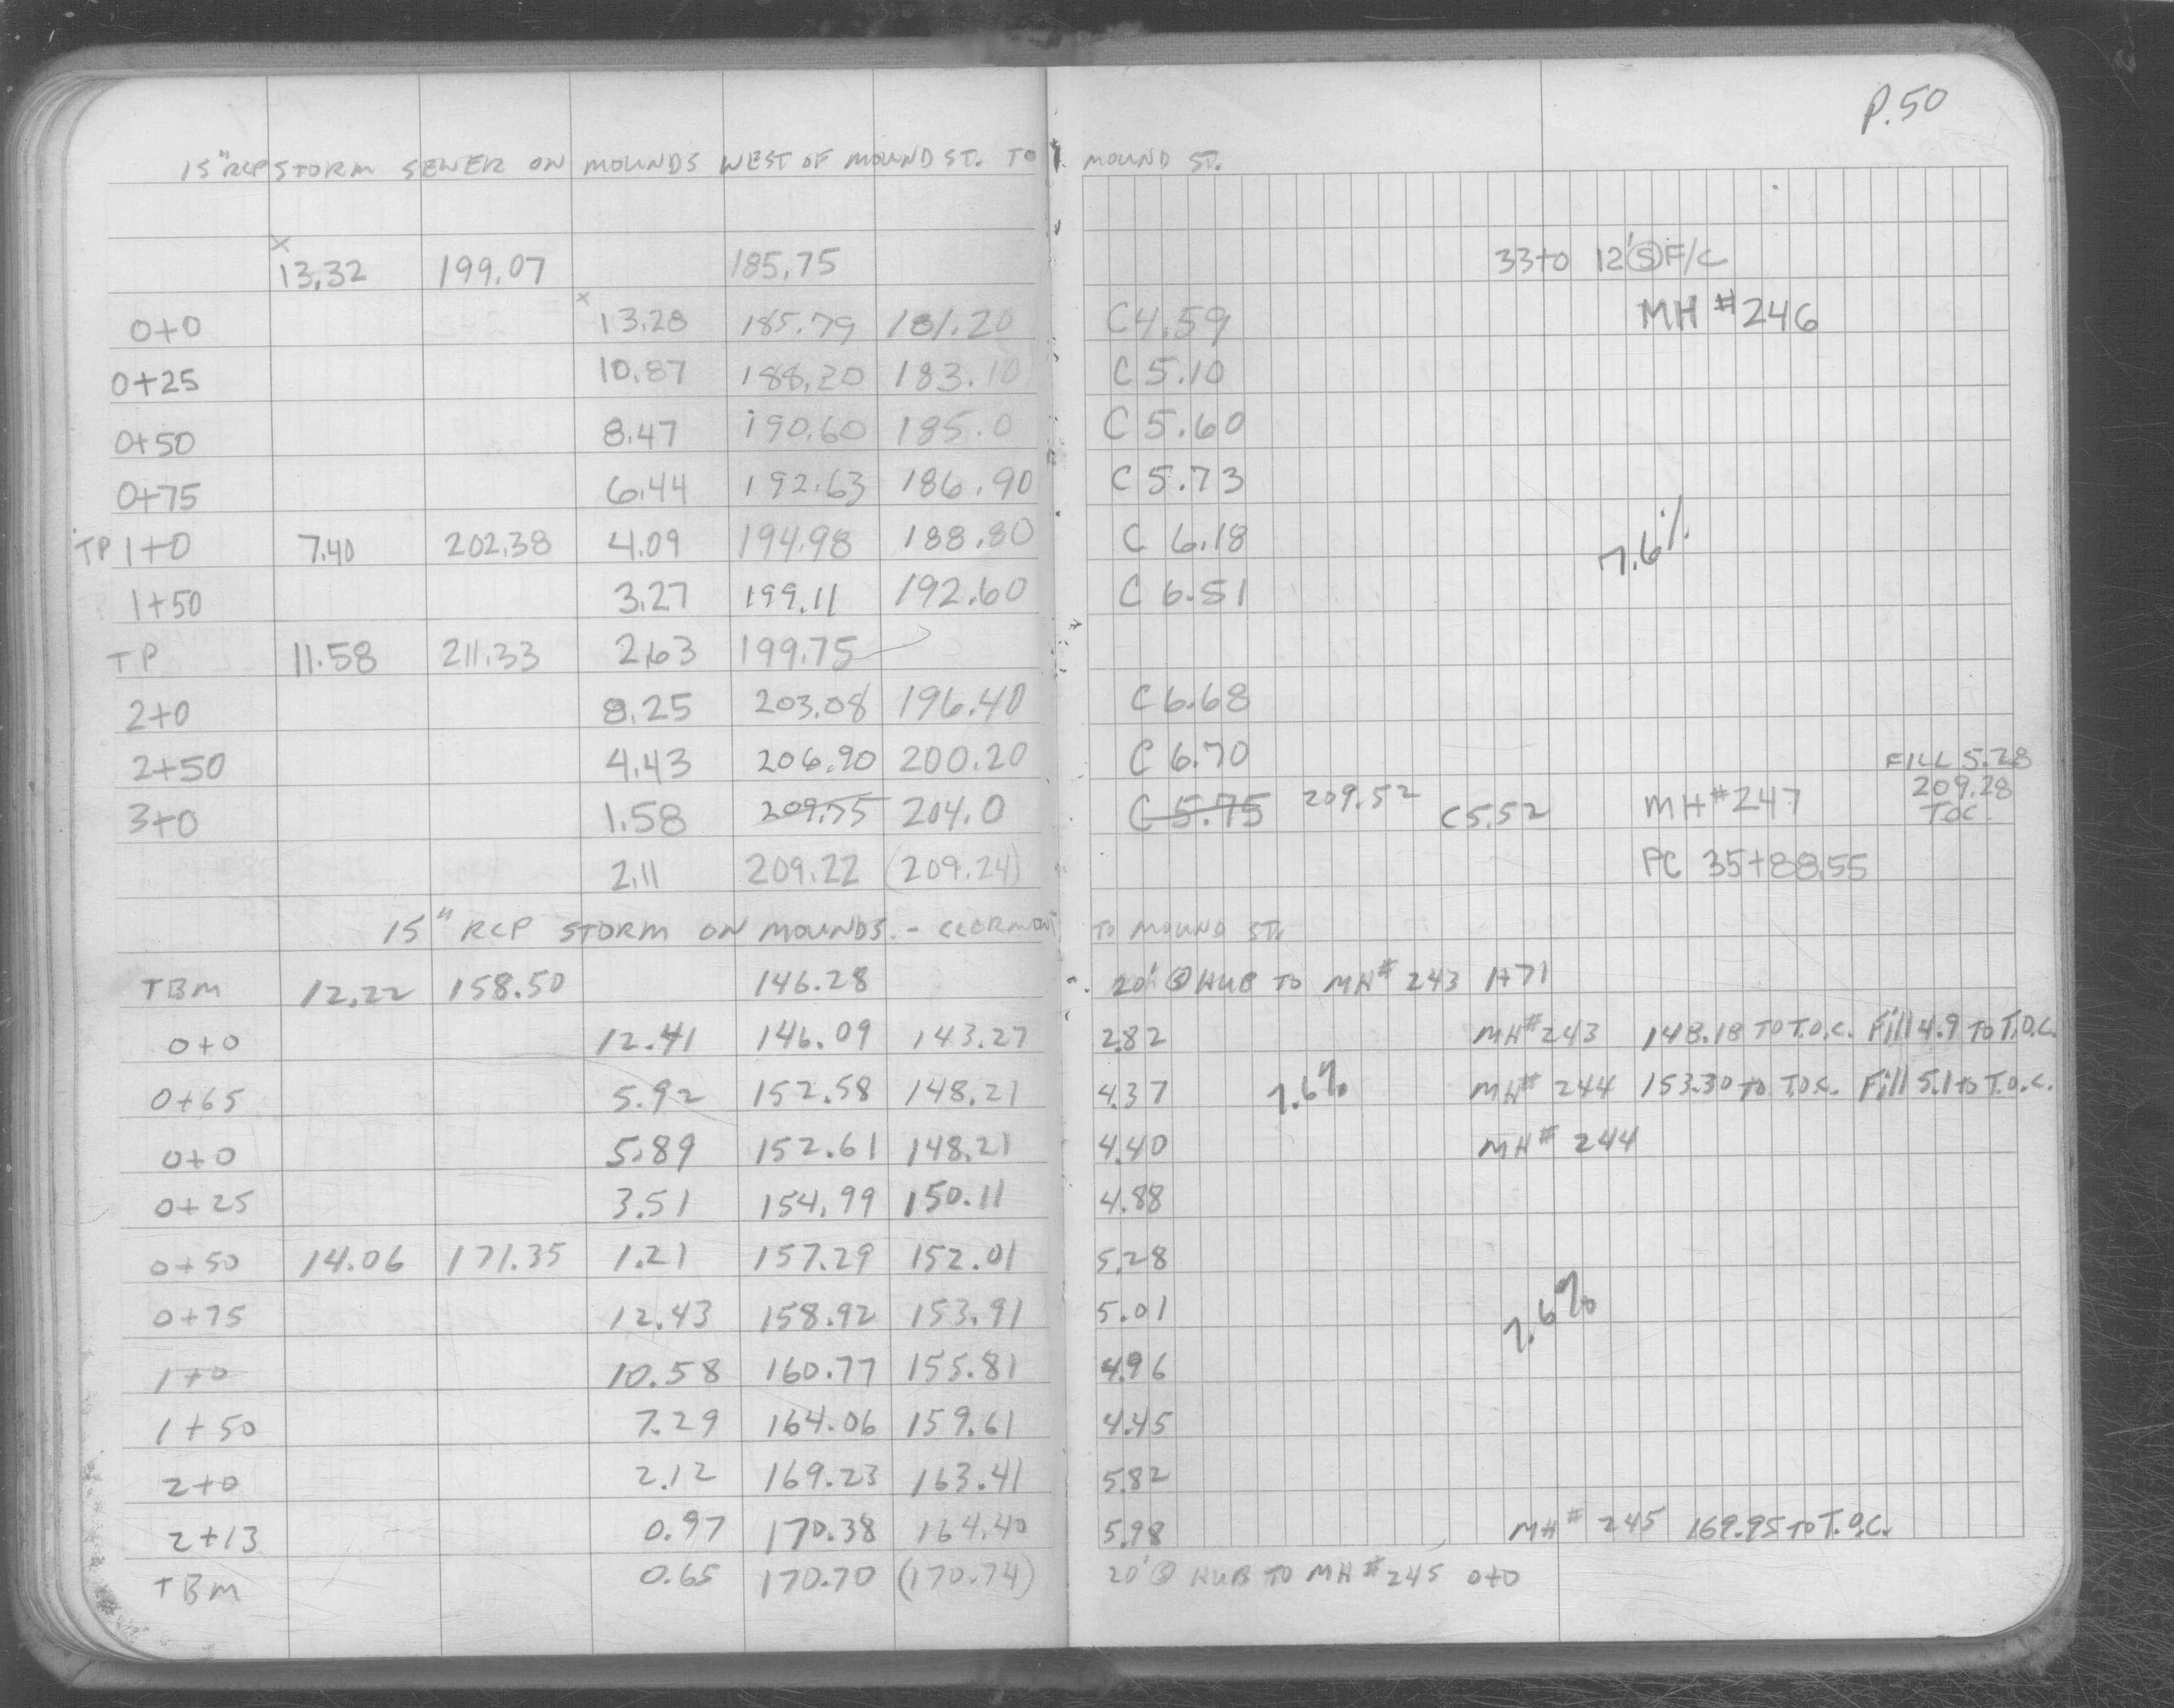 P.50
15" RCP STORM SEWER ON MOUNDS WEST OF MOUND ST. TO MOUND ST.
x
13.32 199.07 185.75 33+0 12' Ⓢ F/C
0+0 x 13.28 185.79 181.20 C 4.59 MH #246
0+25 10.87 188.20 183.10 C 5.10
0+50 8.47 190.60 185.0 C 5.60
0+75 6.44 192.63 186.90 C 5.73
TP 1+0 7.40 202.38 4.09 194.98 188.80 C 6.18 7.6%
1+50 3.27 199.11 192.60 C 6.51
TP 11.58 211.33 2.63 199.75
2+0 8.25 203.08 196.40 C 6.68
2+50 4.43 206.90 200.20 C 6.70 FILL 5.28
3+0 1.58 209.75 204.0 C 5.75 209.52 C 5.52 MH #247 209.28 TOC.
2.11 209.22 (209.24) PC 35+88.55
15" RCP STORM ON MOUNDS. - CLERMONT TO MOUND ST.
TBM 12.22 158.50 146.28 20' Ⓢ HUB TO MH # 243 1+71
0+0 12.41 146.09 143.27 2.82 MH # 243 148.18 TO T.O.C. Fill 4.9 to T.O.C.
0+65 5.92 152.58 148.21 4.37 7.6% MH # 244 153.30 to T.O.C. Fill 5.1 to T.O.C.
0+0 5.89 152.61 148.21 4.40 MH # 244
0+25 3.51 154.99 150.11 4.88
0+50 14.06 171.35 1.21 157.29 152.01 5.28
0+75 12.43 158.92 153.91 5.01 7.6%
1+0 10.58 160.77 155.81 4.96
1+50 7.29 164.06 159.61 4.45
2+0 2.12 169.23 163.41 5.82
2+13 0.97 170.38 164.40 5.98 MH # 245 169.95 to T.O.C.
TBM 0.65 170.70 (170.74) 20' Ⓢ HUB TO MH # 245 0+0